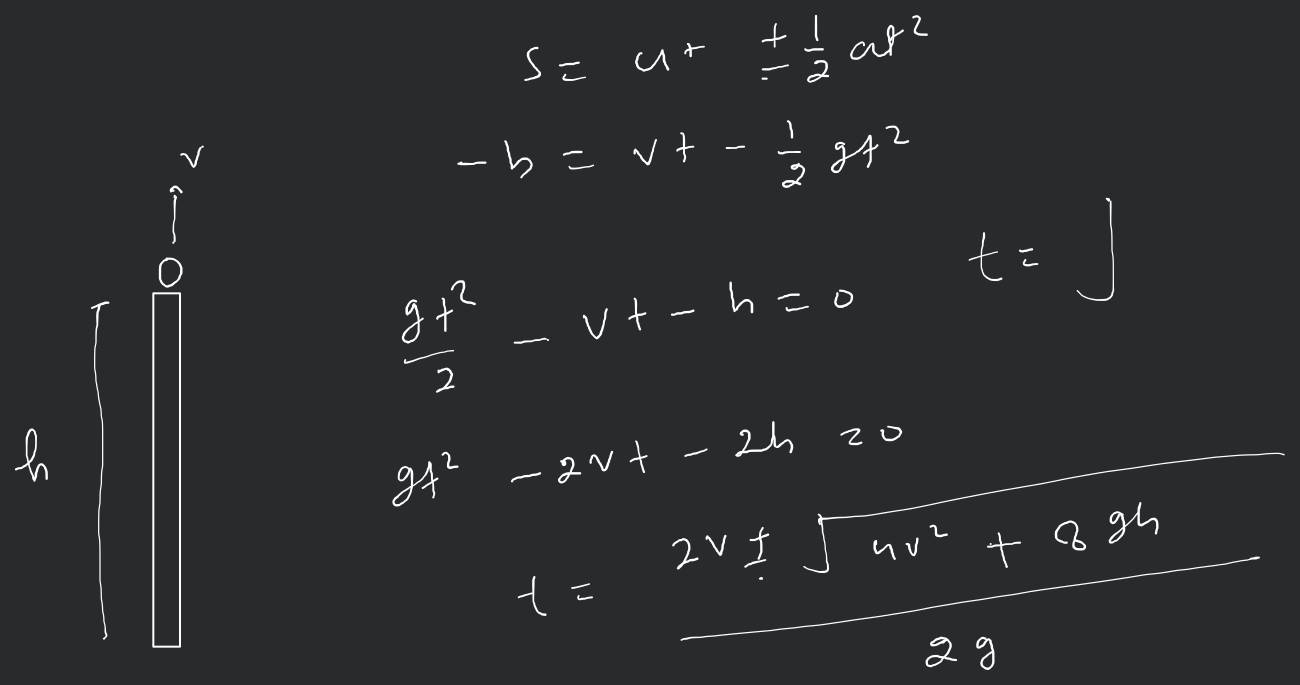 s = ut ± 1/2 at²
-h = vt - 1/2 gt²
v
t = √
gt²/2 - vt - h = 0
h
gt² - 2vt - 2h = 0
t = (2v ± √(4v² + 8gh)) / 2g